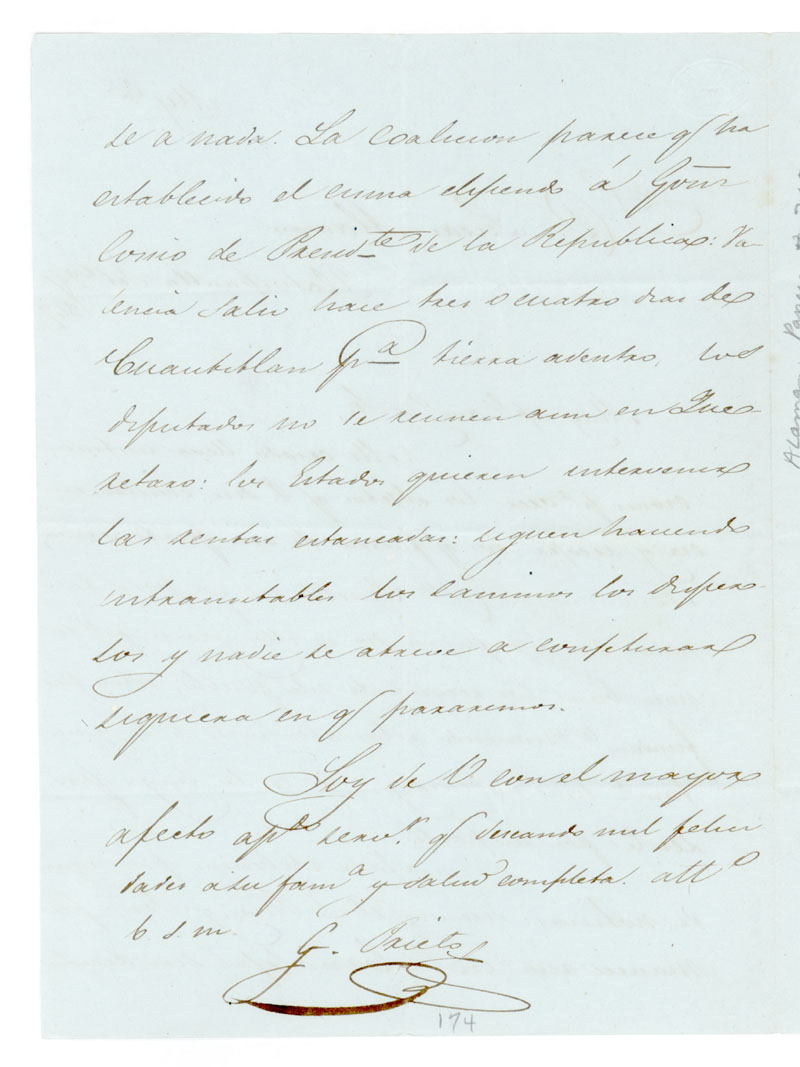 se a nada. La coalicion parece q̃ ha
establecido el cisma eligiendo á Gom̃
Cosio de Presid.te de la Republica: Va-
lencia salio hace tres o cuatro dias de
Cuautitlan p.a tierra adentro, los
diputados no se reunen aun en Que-
retaro: los Estados quieren intervenir
las rentas estancadas: siguen haciendo
intransitables los caminos los disper-
sos y nadie se atreve a conjeturar
siquiera en q̃ pararemos.
Soy de V. con el mayor
afecto ap.do serv.r q̃ deseando mil felici
dades a su fam.a y salud completa. att.o
b. s. m.
G. Prieto
174
Alaman